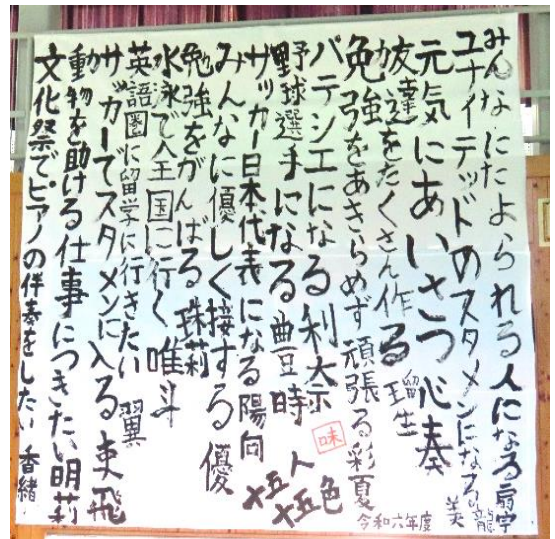 みんなにたよられる人になる
ユナイテッドのスタメンになる
元気にあいさつ 心奏
友達をたくさん作る 瑠生
勉強をあきらめず頑張る 彩夏
パテシエになる
野球選手になる 豊時
サッカー日本代表になる 陽向
みんなに優しく接する 優
勉強をがんばる 珠莉
水泳で全国に行く 唯斗
英語圏に留学に行きたい 翼
サッカーでスタメンに入る
動物を助ける仕事につきたい 明莉
文化祭でピアノの伴奏をしたい 香緒
味
十五人
十五色
令和六年度